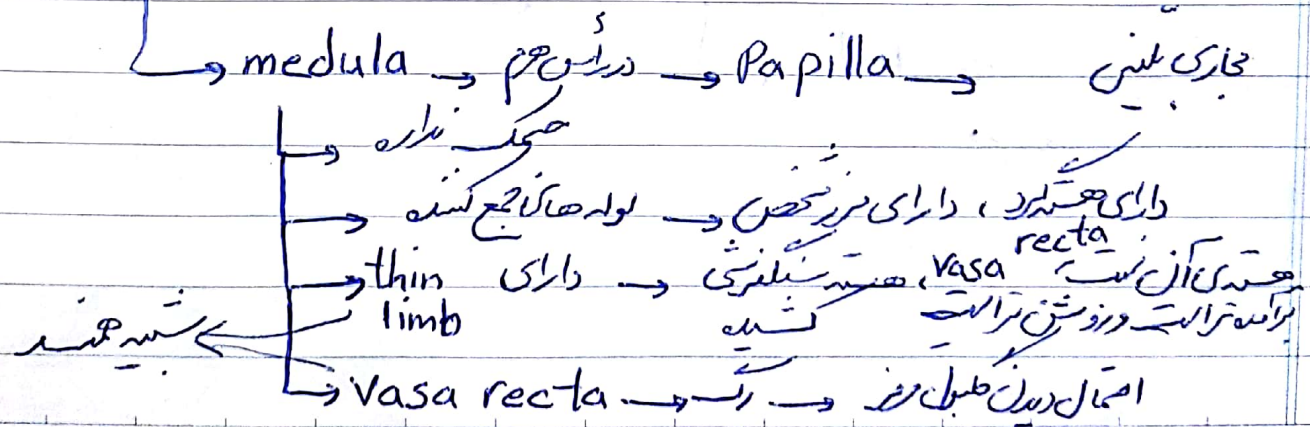 medula → در رأس هرم → Papilla → مجاری بلینی
جسمک ندارد
لوله های جمع کننده → دارای مرز مشخص ، دارای هسته گرد
thin limb → دارای هسته سنگفرشی کشیده ، هسته ی آن نسبت vasa recta برآمده تر است و روشن تر است
شبیه همند
vasa recta → رگ → احتمال دیدن گلبول قرمز